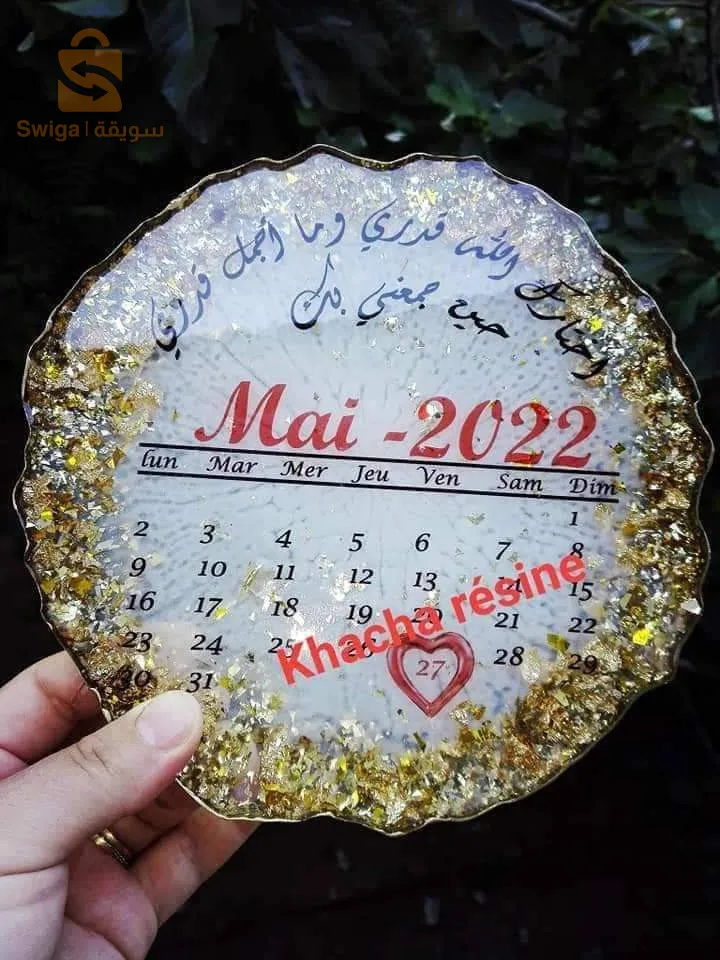 Swiga | سويقة
اختارك الله قدري وما أجمل قدري
حين جمعني بك
Mai -2022
lun Mar Mer Jeu Ven Sam Dim
1
2 3 4 5 6 7 8
9 10 11 12 13 14 15
16 17 18 19 20 21 22
23 24 25 26 27 28 29
30 31
Khacha résine